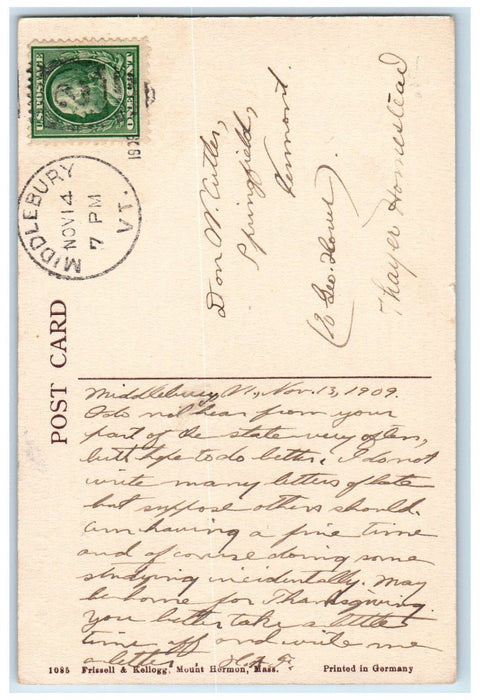 U.S. POSTAGE
ONE CENT
MIDDLEBURY VT.
NOV 14
7 PM
1909
POST CARD
Don W. Cutler,
Springfield,
Vermont.
(% Geo. Howe)
Thayer Homestead
Middlebury, Vt., Nov. 13, 1909.
I do not hear from your
part of the state very often,
but hope to do better. I do not
write many letters of late
but suppose others should.
Am having a fine time
and of course doing some
studying incidentally. May
be home for Thanksgiving.
You better take a little
time off and write me
a letter. H.A.F.
1085 Frissell & Kellogg, Mount Hermon, Mass. Printed in Germany